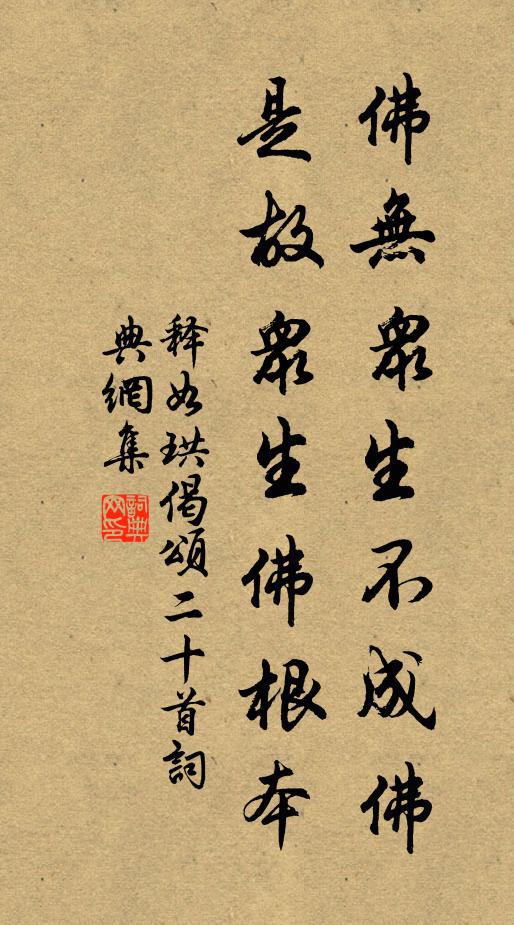 佛無眾生不成佛
是故眾生佛根本
释如珙偈頌二十首詞
典網集
詞典
网印